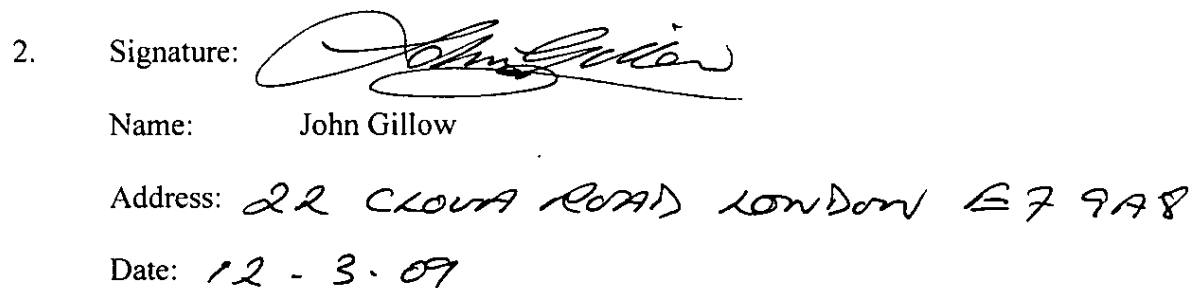 2. Signature: John Gillow
Name: John Gillow
Address: 22 CLOVA ROAD LONDON E7 9A8
Date: 12 - 3 . 09